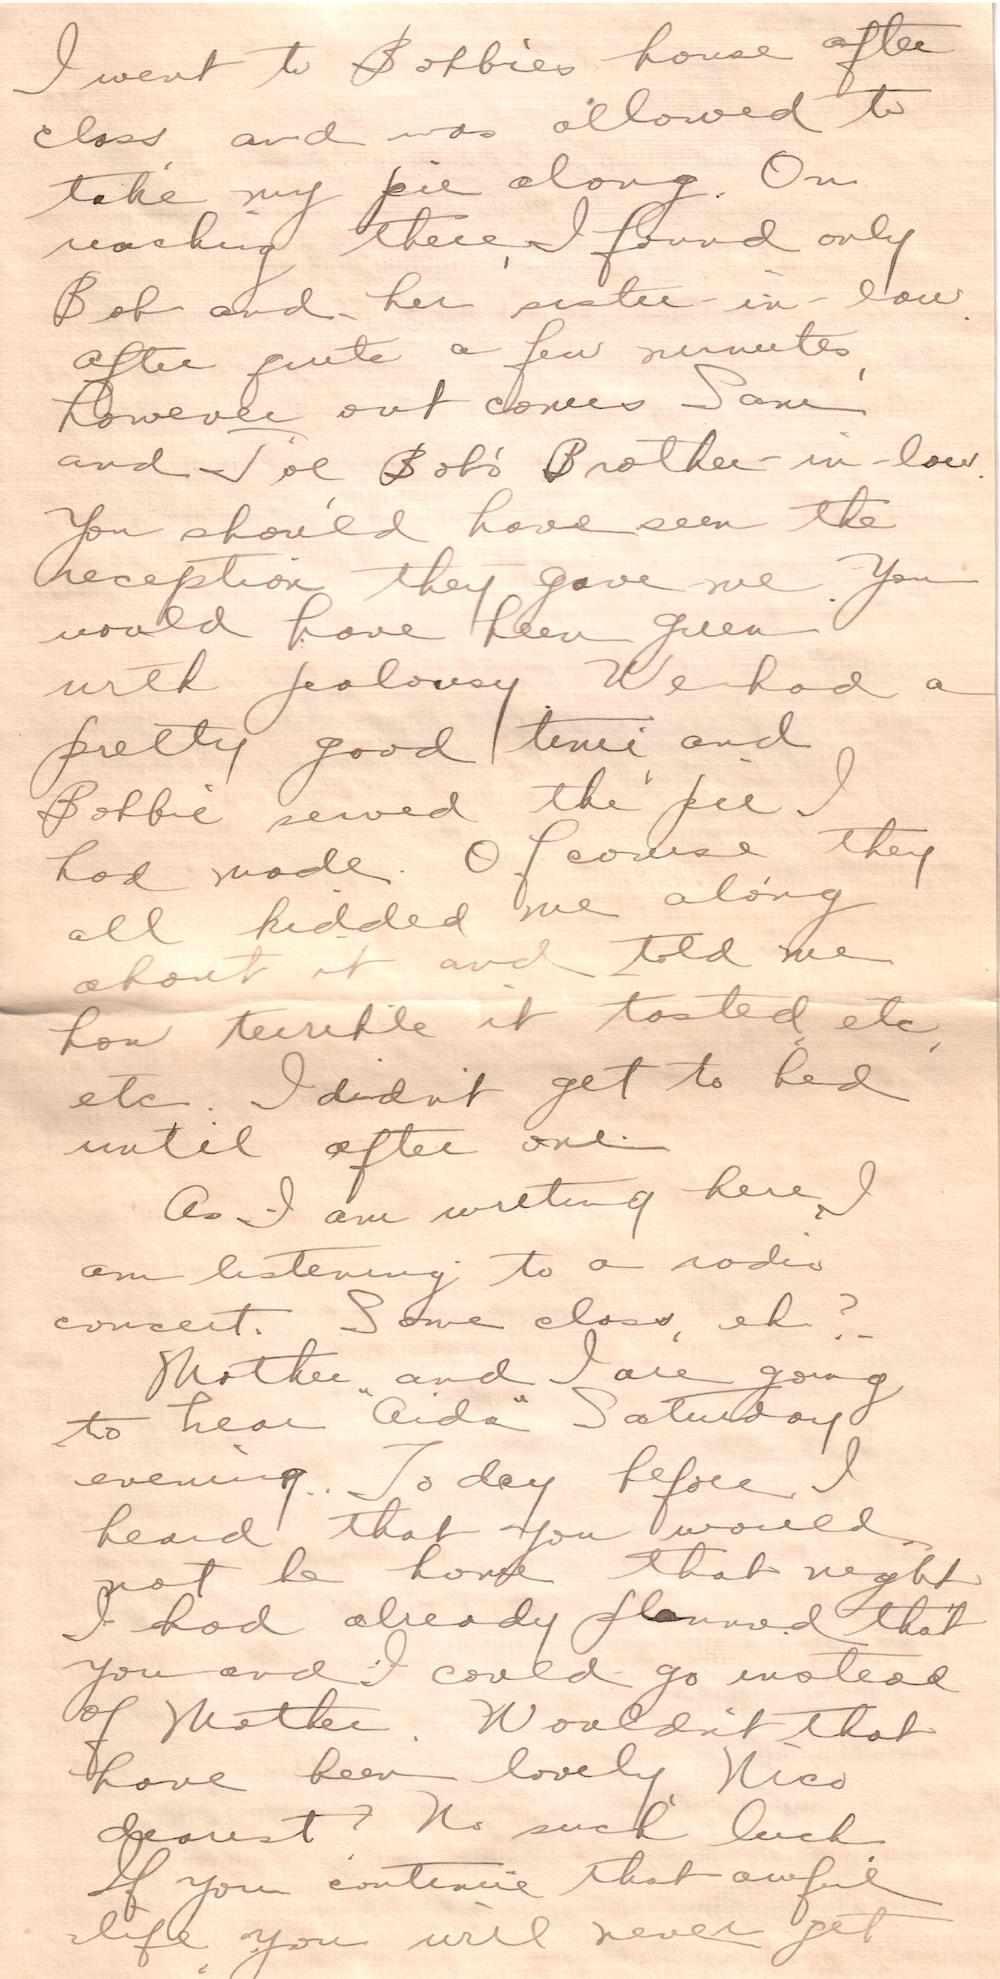 I went to Bobbies house after
class and was allowed to
take my pie along. On
reaching there, I found only
Bob and her sister-in-law.
after quite a few minutes,
however out comes Sam
and Joe Bob's Brother-in-law.
You should have seen the
reception they gave me. You
would have been green
with jealousy We had a
pretty good time, and
Bobbie served the pie I
had made. Of course they
all kidded me along
about it and told me
how terrible it tasted, etc,
etc. I didn't get to bed
until after one.
As I am writing here, I
am listening to a radio
concert. Some class, eh?
Mother and I are going
to hear "Aida" Saturday
evening. To day before I
heard that you would
not be home that night
I had already planned that
you and I could go instead
of Mother. Wouldn't that
have been lovely, Nico
dearest? No such luck
If you continue that awful
life, you will never get